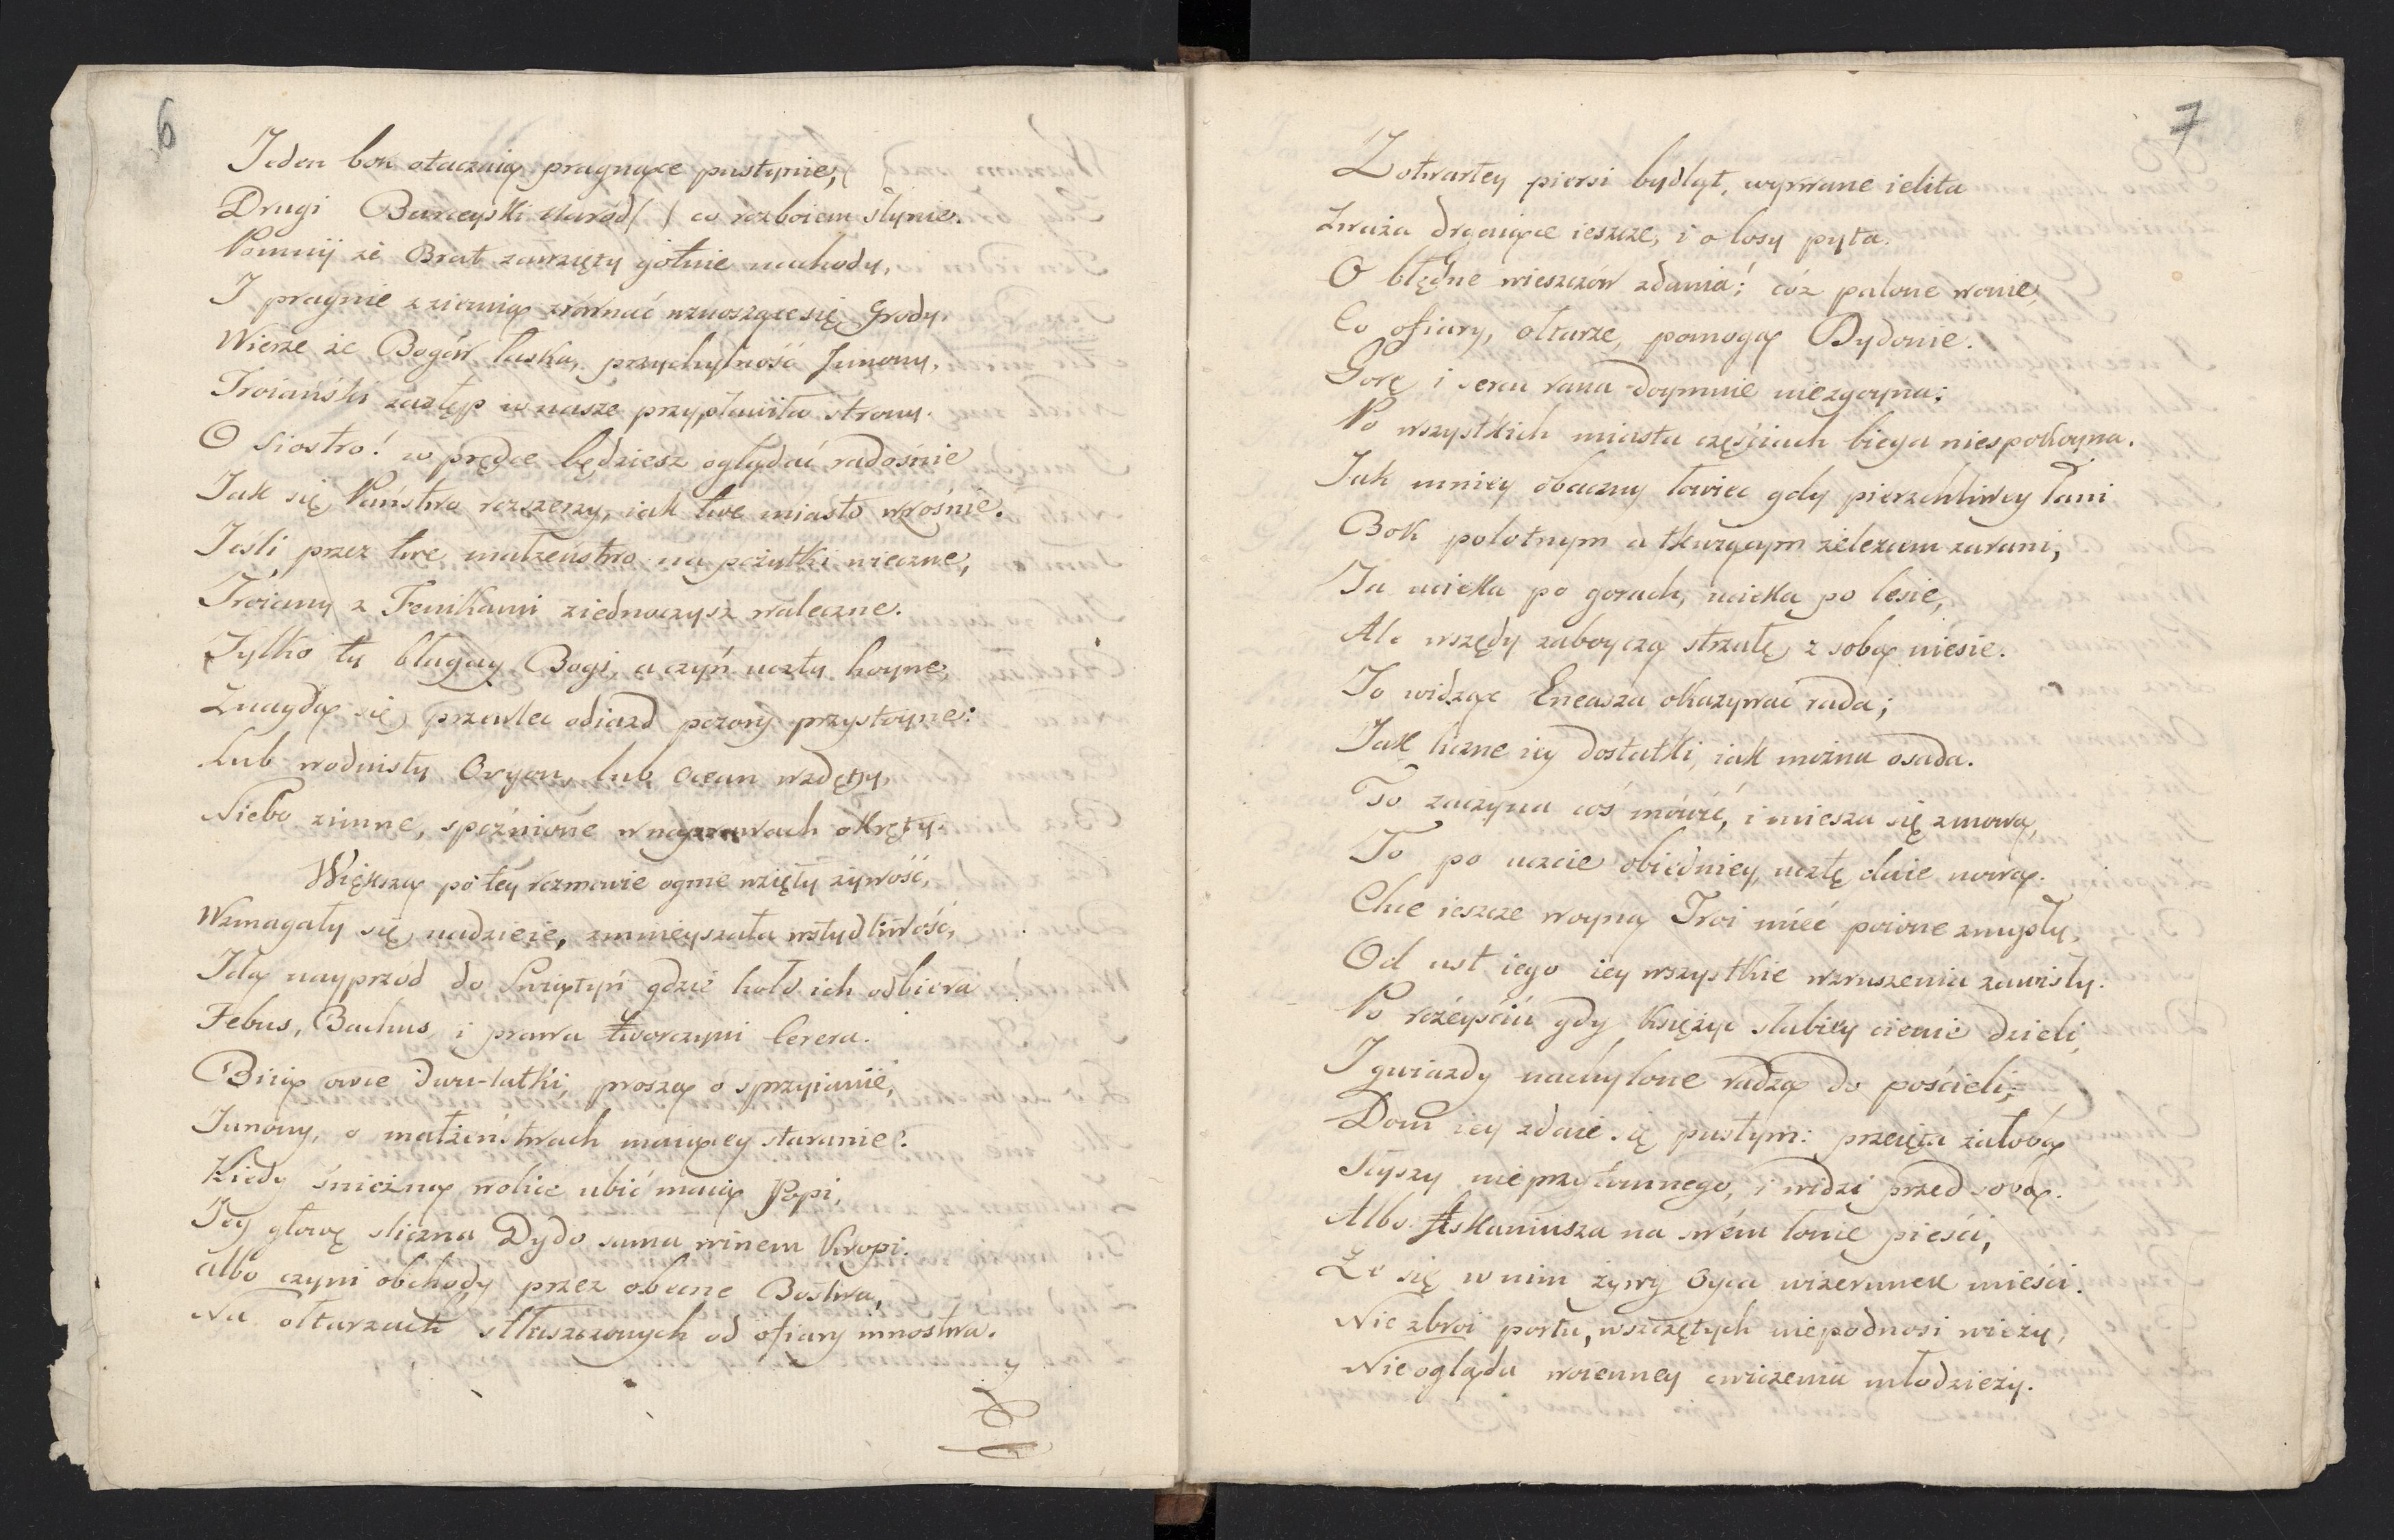 6
Jeden bok otaczaią pragnące pustynie,
Drugi Barceyski naród( ) co rozboiem słynie.
Pomniy że Brat zawzięty gotuie nachody,
I pragnie z ziemią zrównać wznoszące się Grody.
Wierzę że Bogów łaska, przychylność Junony,
Troiański zastęp w nasze przypławiła strony.
O Siostro! w prędce będziesz oglądać radośnie
Jak się Państwo rozszerzy, iak twe miasto wzrośnie.
Jeśli przez twe małżeństwo na pożytki wieczne,
Troiany z Fenikami ziednoczysz waleczne.
Tylko ty błagay Bogi, a czyń uczty hoyne,
Znaydą się przewlec odiazd pozory przystoyne:
Lub wodnisty Oryon, lub Ocean wzdęty,
Niebo zimne, spóźnione w naprawach okręty.
Większą po tey rozmowie ognie wzięły żywość,
Wzmagały się nadzieie, zmnieyszała wstydliwość,
Idą nayprzód do Świątyń gdzie hołd ich odbiera
Febus, Bachus i prawa tworczyni Cerera.
Biią owce dwu-latki, proszą o sprzyianie,
Junony, o małżeństwach maiącey staranie.
Kiedy śnieżną wolicę ubić maią Popi,
Jey głowę śliczna Dydo sama winem kropi.
Albo czyni obchody przez obecne Bostwa,
Na ołtarzach stłuszczonych od ofiary mnostwa.
Z
7
Z otwartey piersi bydląt, wyrwane ielita
Zważa drgaiące ieszcze, i o losy pyta.
O błędne wieszczów zdania! cóż palone wonie,
Co ofiary, ołtarze, pomogą Dydonie.
Gorę i sercu rana doymuie niezgoyna;
Po wszystkich miasta częściach biega niespokoyna.
Jak mniey obaczny łowiec gdy pierzchliwey łani
Bok polotnym a tkwiącym żelezcem zarani,
Ta ucieka po gorach, ucieka po lesie,
Ale wszędy zaboyczą strzałę z sobą niesie.
To widząc Eneasza okazywać rada;
Jak liczne iey dostatki, iak można osada.
To zaczyna coś mówić, i miesza się z mową,
To po uczcie obiedniey, ucztę daie nową.
Chce ieszcze woyną Troi mieć poione zmysły,
Od ust iego iey wszystkie wzruszenia zawisły.
Po rozeyściu gdy Księżyc słabiey cienie dzieli,
I gwiazdy nachylone radzą do pościeli;
Dom iey zdaie się pustym: przeięta żałobą
Słyszy nieprzytomnego, i widzi przed sobą.
Albo Askaniusza na swém łonie pieści,
Że się w nim żywy Oyca wizerunek mieści.
Nie zbroi portu, wszczętych niepodnosi wieży,
Nie ogląda woienney cwiczenia młodzieży.